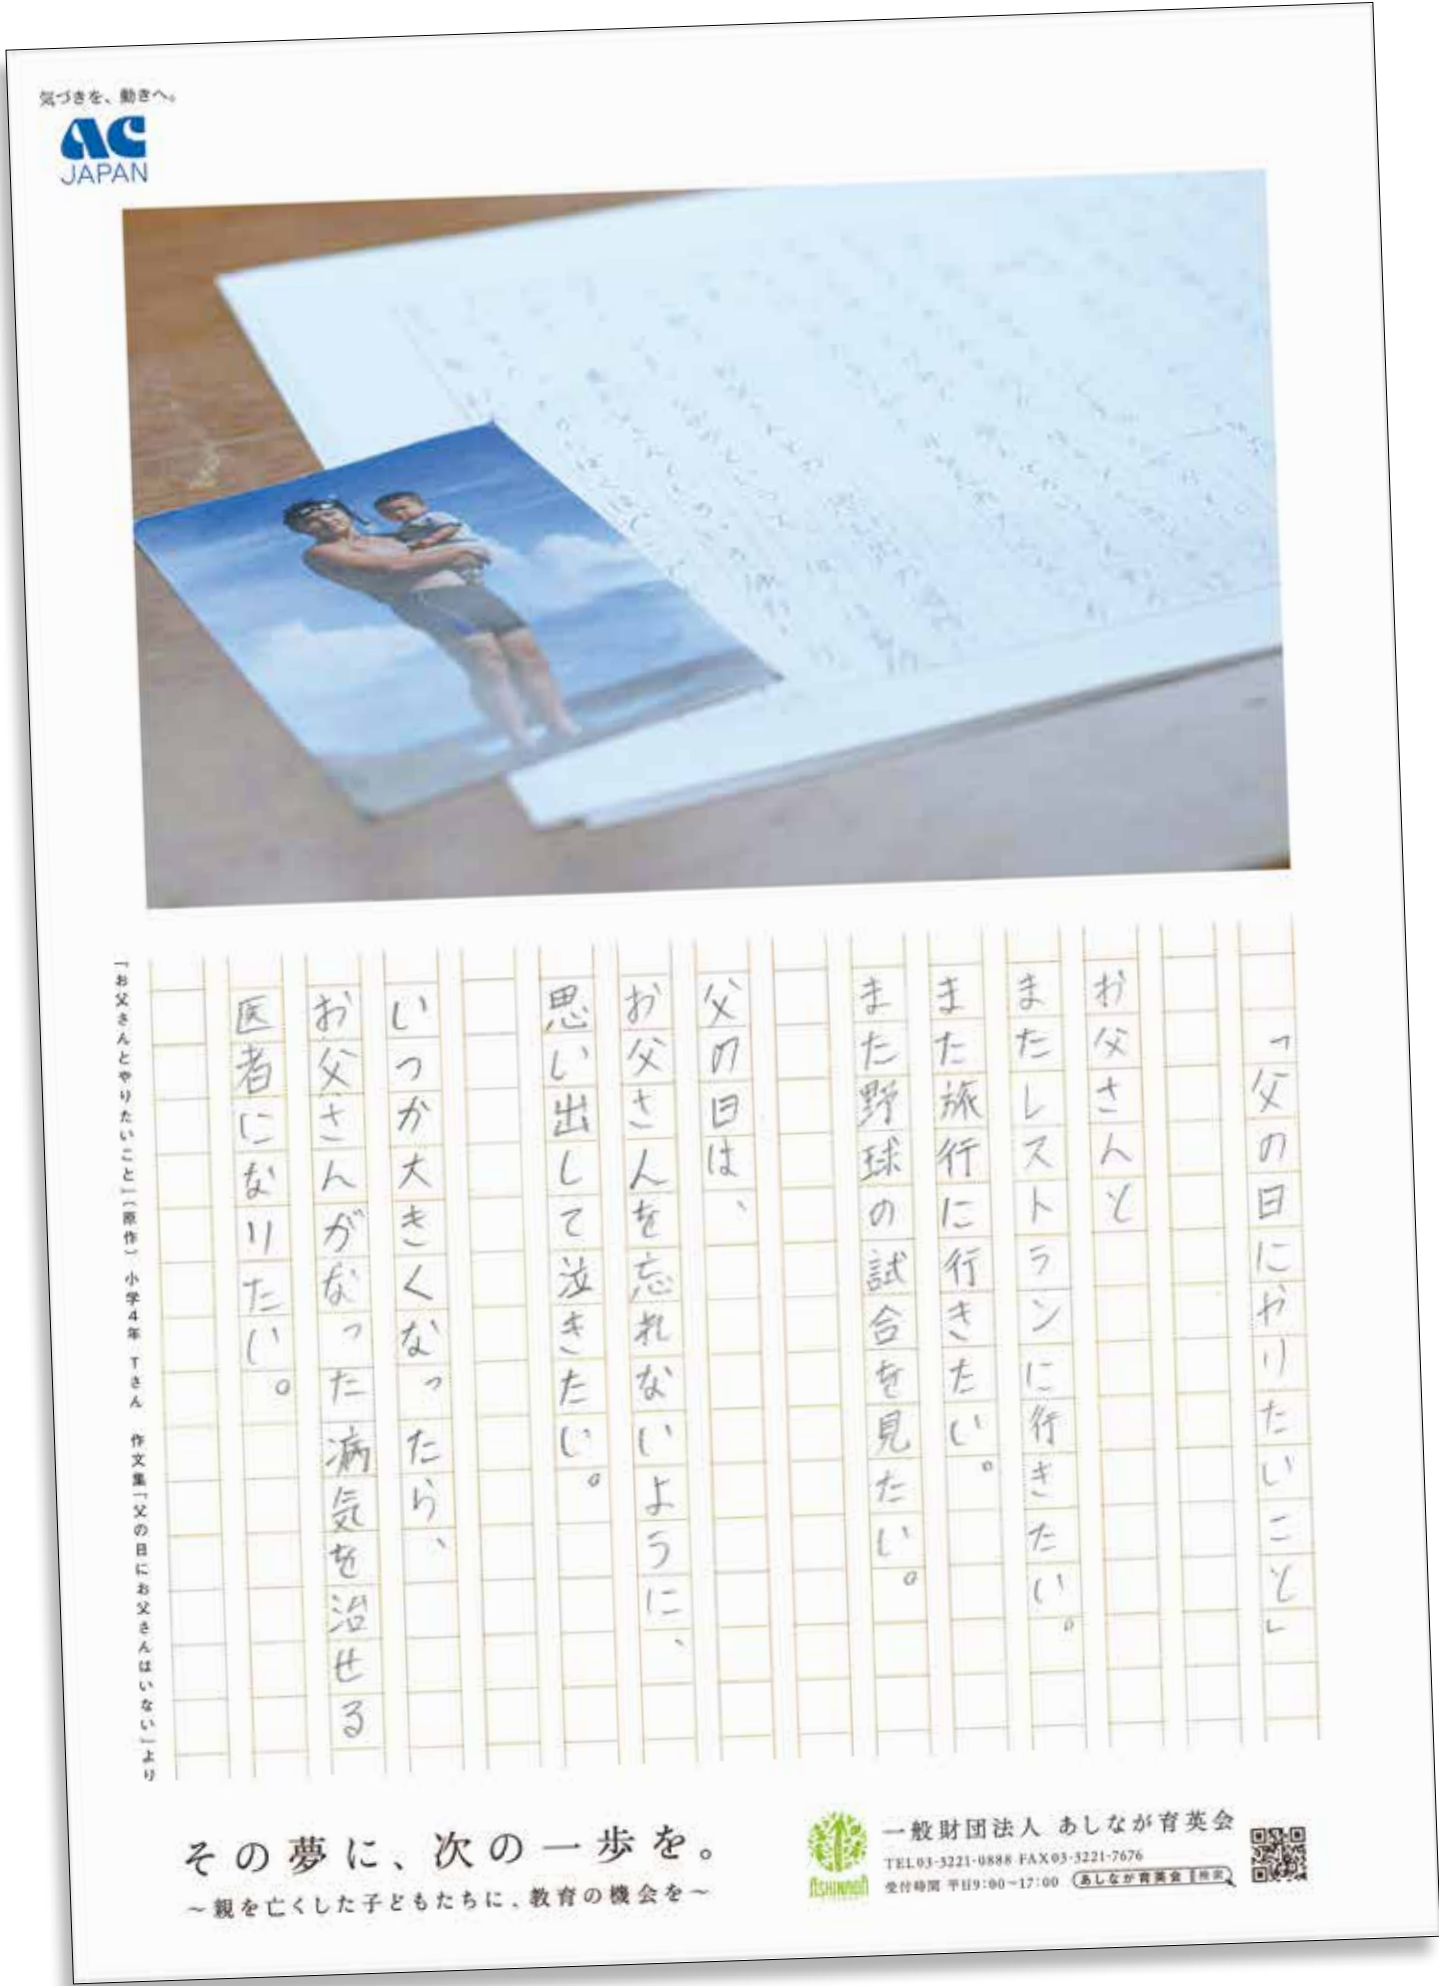 気づきを、動きへ。
AC
JAPAN
「父の日にやりたいこと」
お父さんと
またレストランに行きたい。
また旅行に行きたい。
また野球の試合を見たい。
父の日は、
お父さんを忘れないように、
思い出して泣きたい。
いつか大きくなったら、
お父さんがなった病気を治せる
医者になりたい。
「お父さんとやりたいこと」(原作) 小学4年 Tさん 作文集「父の日にお父さんはいない」より
その夢に、次の一歩を。
～親を亡くした子どもたちに、教育の機会を～
ASHINAGA
一般財団法人 あしなが育英会
TEL03-3221-0888 FAX03-3221-7676
受付時間 平日9:00~17:00 あしなが育英会 検索